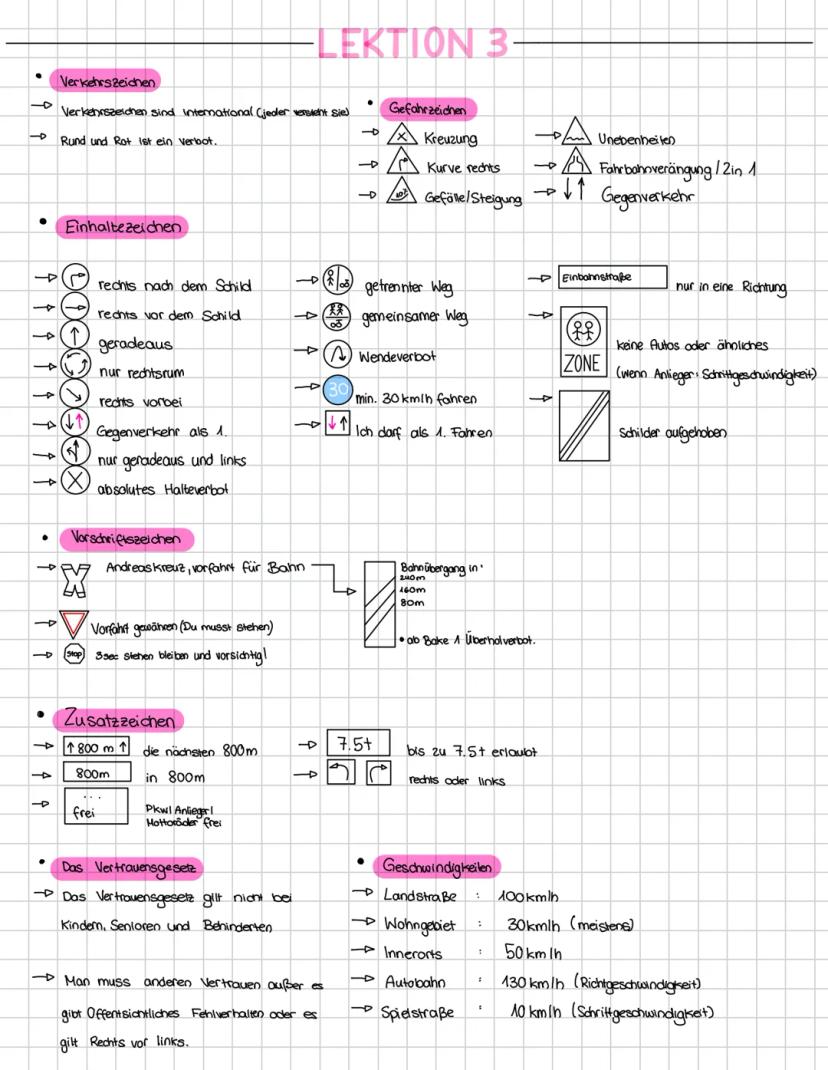 LEKTION 3
Verkehrszeichen
Verkehrszeichen sind international (jeder versteht sie)
Rund und Rot ist ein Verbot.
Gefahrzeichen
Kreuzung
Kurve rechts
10%
Gefälle/Steigung
Unebenheiten
Fahrbahnverängung / 2 in 1
Gegenverkehr
Einhaltezeichen
rechts nach dem Schild
rechts vor dem Schild
geradeaus
nur rechtsrum
rechts vorbei
Gegenverkehr als 1.
nur geradeaus und links
absolutes Halteverbot
getrennter Weg
gemeinsamer Weg
Wendeverbot
30
min. 30 km/h fahren
Ich darf als 1. Fahren
Einbahnstraße
nur in eine Richtung
ZONE
keine Autos oder ähnliches
(wenn Anlieger: Schrittgeschwindigkeit)
Schilder aufgehoben
Vorschriftszeichen
Andreaskreuz, vorfahrt für Bahn
Bahnübergang in:
240m
160m
80m
• ab Bake 1 Überholverbot.
Vorfahrt gewähren (Du musst stehen)
Stop
3sec stehen bleiben und vorsichtig!
Zusatzzeichen
↑ 800 m ↑
die nächsten 800m
800m
in 800m
...
frei
Pkw/ Anlieger/
Mottoräder frei
7.5t
bis zu 7.5t erlaubt
rechts oder links
Das Vertrauensgesetz
Das Vertrauensgesetz gilt nicht bei
Kindern, Senioren und Behinderten
Man muss anderen Vertrauen außer es
gibt Offentsichtliches Fehlverhalten oder es
gilt Rechts vor links.
Geschwindigkeiten
Landstraße : 100km/h
Wohngebiet : 30km/h (meistens)
Innerorts : 50 km/h
Autobahn : 130 km/h (Richtgeschwindigkeit)
Spielstraße : 10 km/h (Schrittgeschwindigkeit)